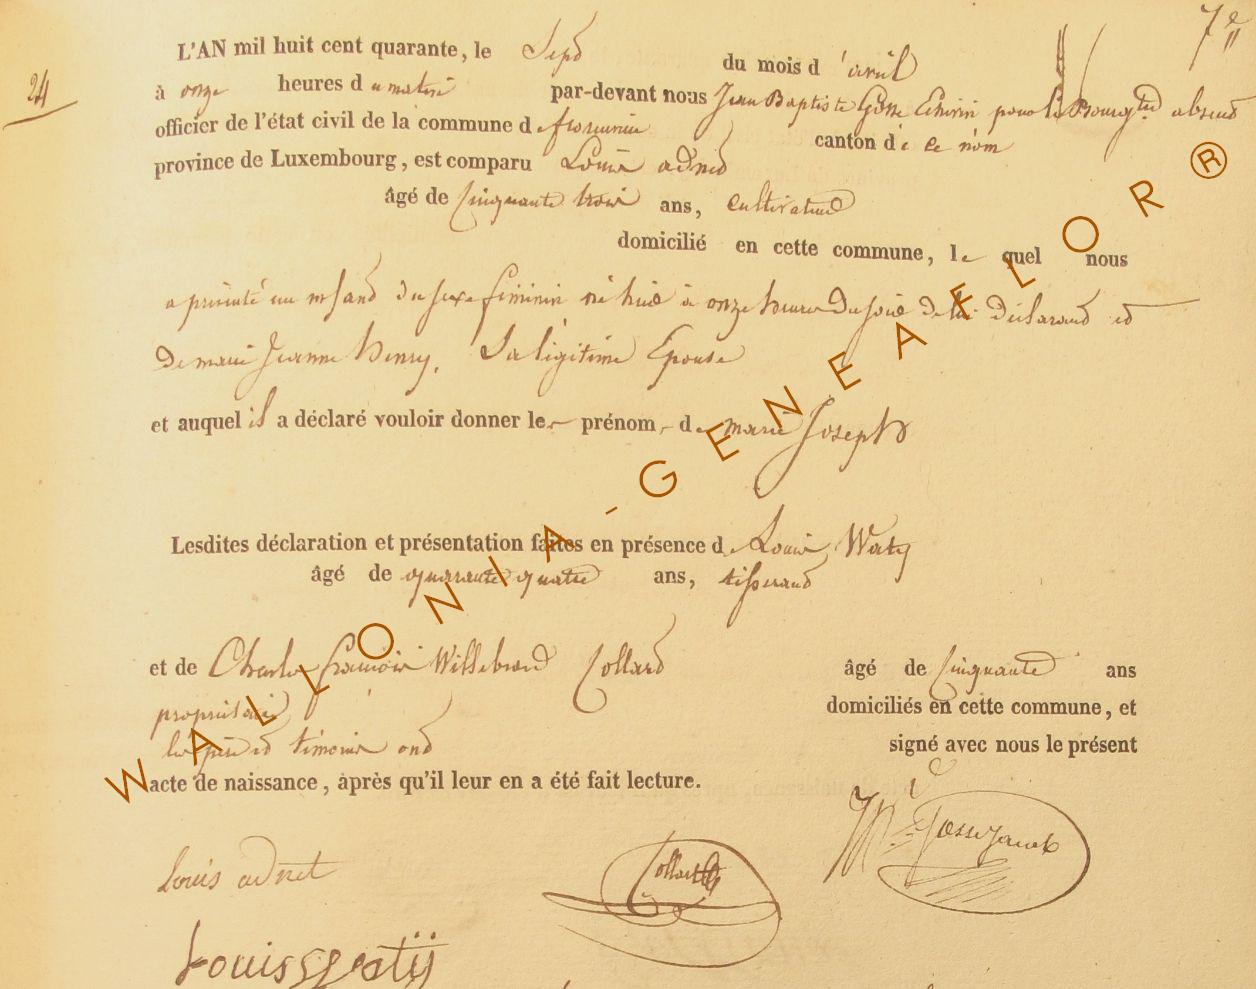 24
7e
L'AN mil huit cent quarante, le Sept du mois d'avril
à onze heures du matin par-devant nous Jean Baptiste Gosse Echevin pour le Bourgtre absent
officier de l'état civil de la commune de canton de ce nom
province de Luxembourg, est comparu Louis adnet
âgé de Cinquante trois ans, cultivateur
domicilié en cette commune, lequel nous
a présenté un enfant du sexe féminin né hier à onze heures du soir de lui déclarant et
de marie Jeanne henry, Sa légitime Epouse
et auquel il a déclaré vouloir donner les prénoms de marie Joseph
Lesdites déclaration et présentation faites en présence de Louis Waty
âgé de quarante quatre ans, tisserand
et de Charles François Willebrord Collard âgé de Cinquante ans
propriétaire domiciliés en cette commune, et
les père et témoins ont signé avec nous le présent
acte de naissance, après qu'il leur en a été fait lecture.
Louis adnet
Collard
Louis Watij
WALLONIA-GENEAFLOR®